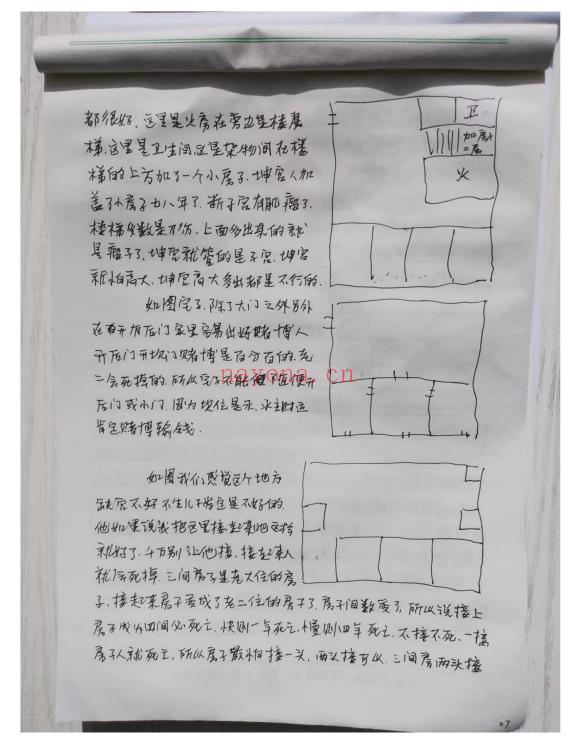 都很好，这里是火房在旁边是楼层
梯，这里是卫生间，这是杂物间，在楼
梯的上方加了一个小房子，坤宫人加
盖了小房子七八年了，断子宫有肌瘤了，
楼梯多数是不行，上面多出来的就
是瘤子了，坤宫就管的是子宫，坤宫
就怕高大，坤宫高大多出都是不行的。
如图宅子，除了大门之外另外
还要开旁后门家里容易出好赌博人
开后门开坎门赌博是百分百的，老
二会死掉的，所以宅子不能随便开
后门或小门，因为坎位是水，水主财运
肯定赌博输钱。
如图我们感觉这个地方
缺宫不好不生儿子肯定是不好的，
他如果说我把这里接起来吧这样
就好了，千万别让他接，接起来人
就会死掉，三间房子是老大位的房
子，接起来房子变成了老二位的房子了，房子间数变了，所以说接上
房子成为四间必死亡，快则一年死亡，慢则四年死亡，不接不死，一接
房子人就死亡，所以房子最怕接一头，两头接可以，三间房两头接
卫
加房子
二层
火
nayona.cn
27